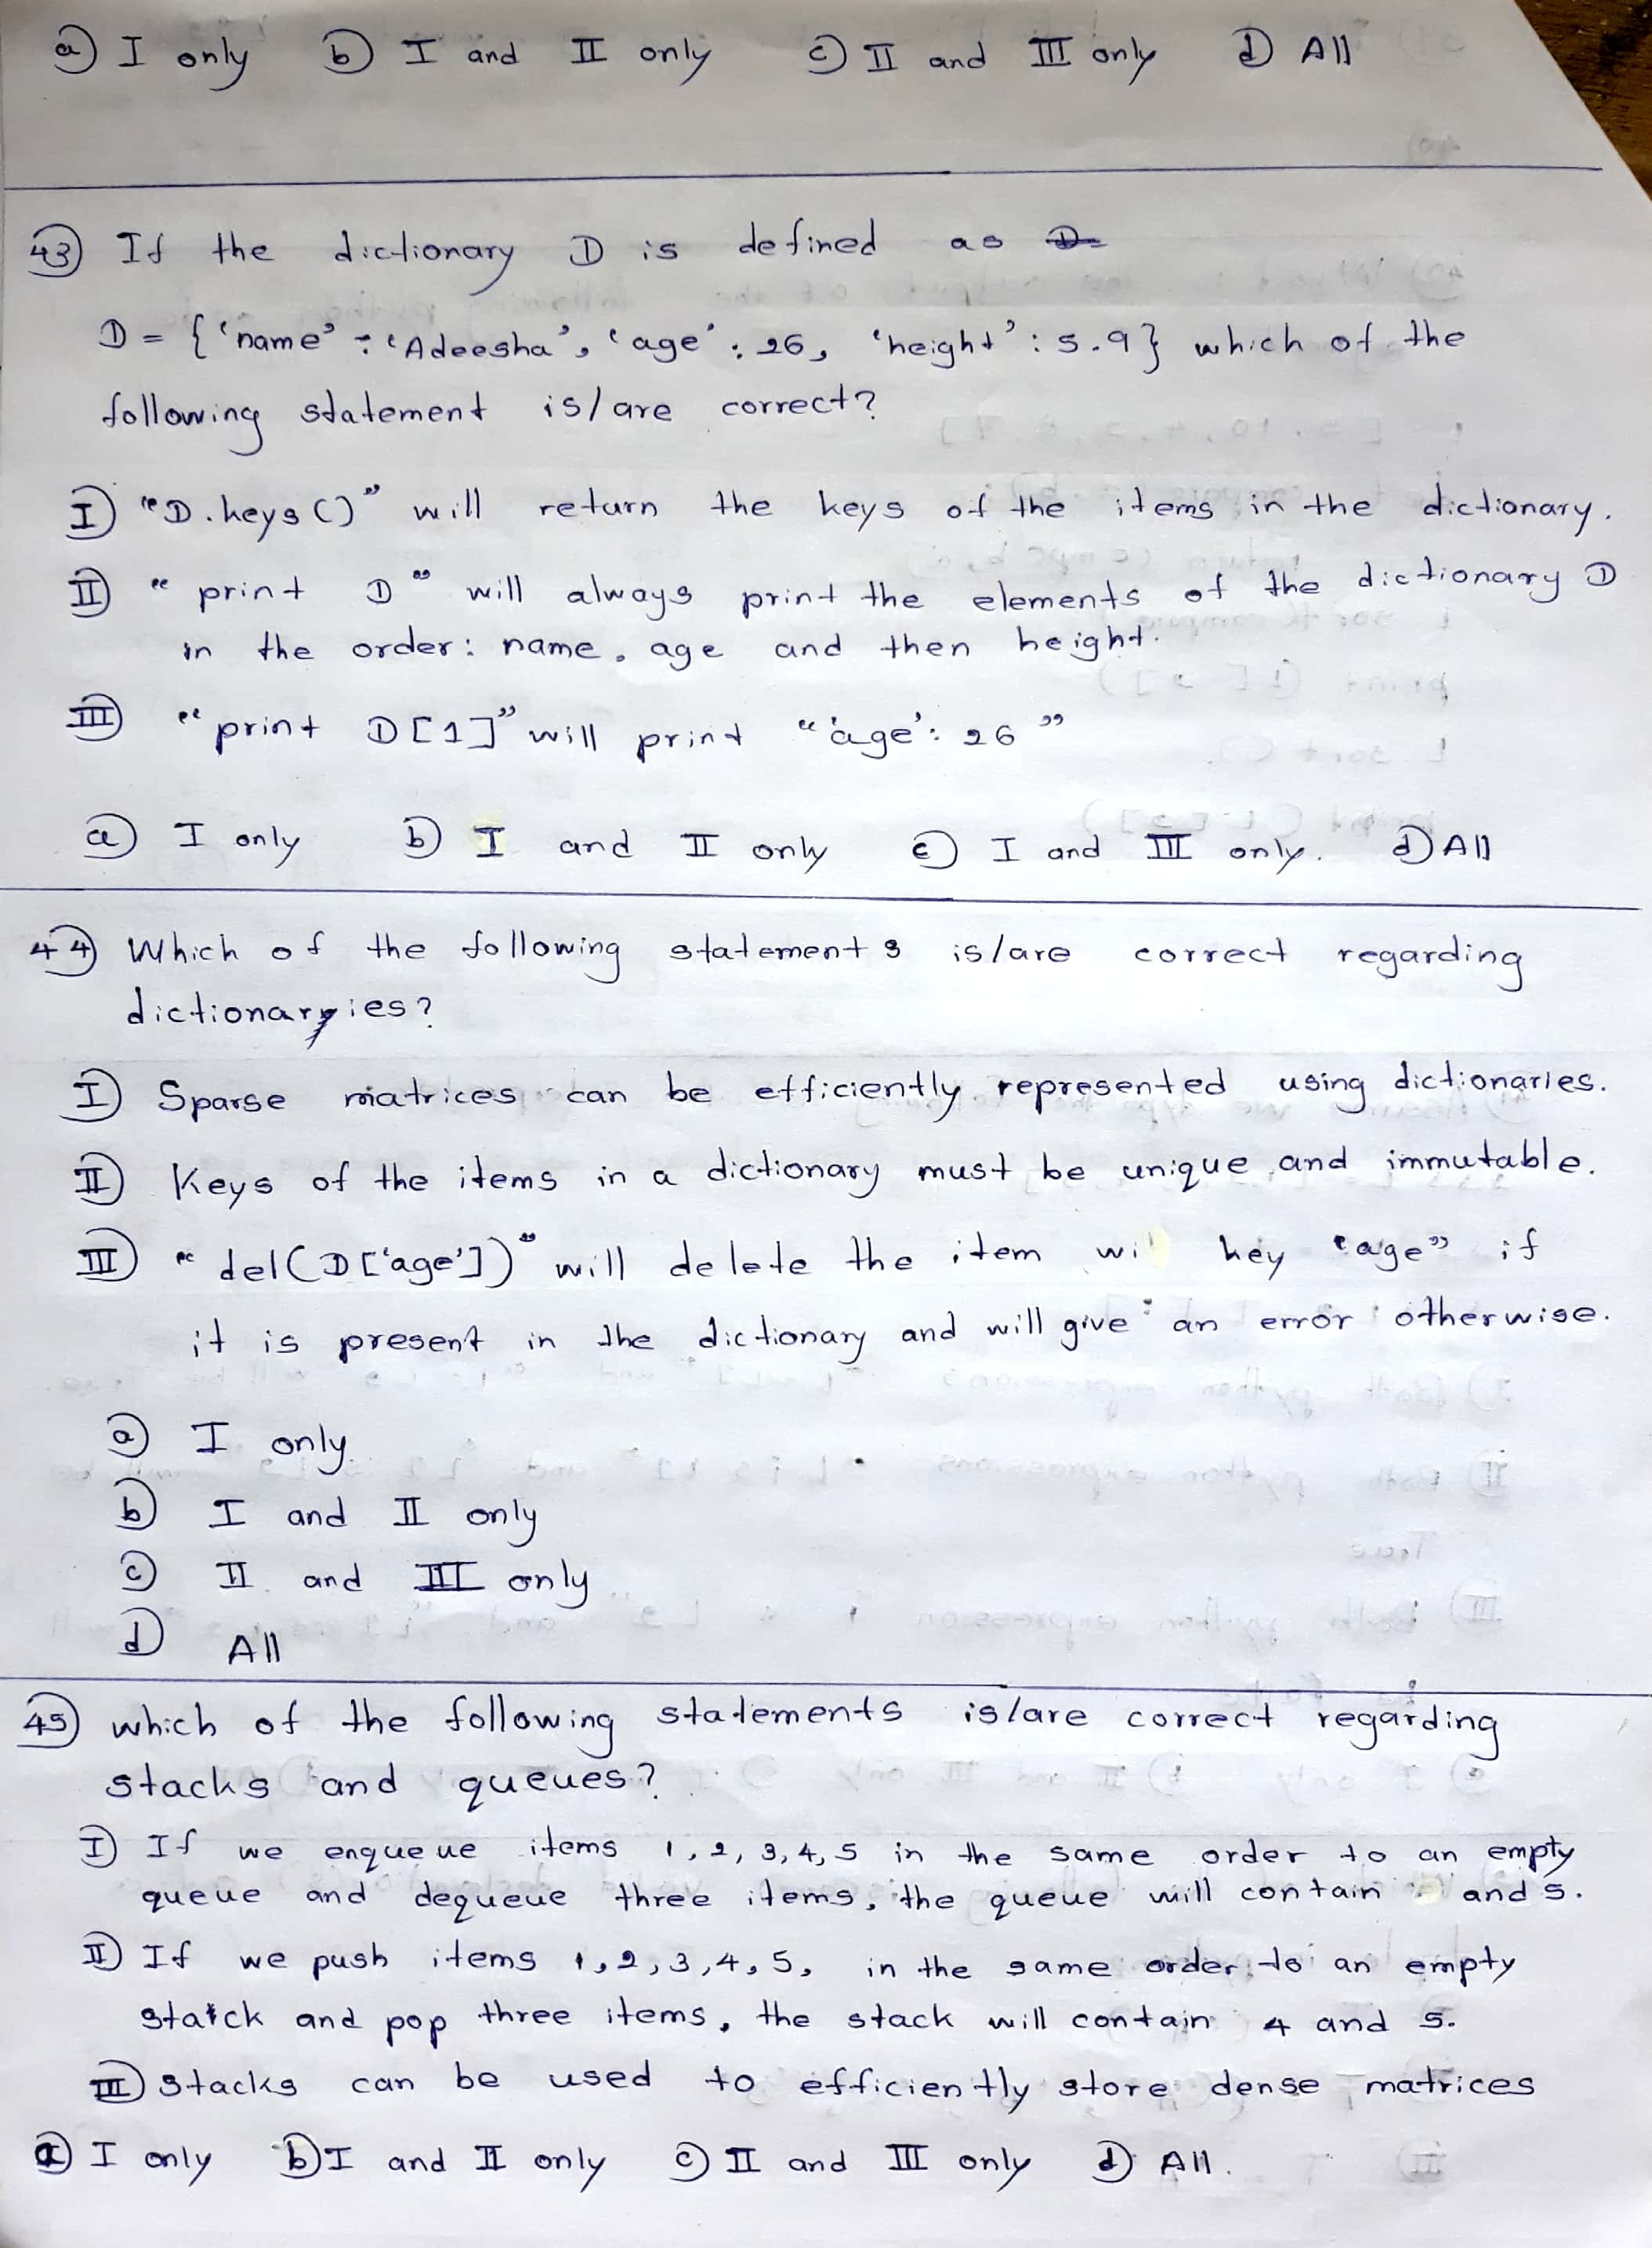 a) I only b) I and II only c) II and III only d) All
43) If the dictionary D is defined as
D = { 'name' : 'Adeesha', 'age' : 26, 'height' : 5.9} which of the
following statement is/are correct?
I) "D.keys()" will return the keys of the items in the dictionary.
II) "print D" will always print the elements of the dictionary D
in the order: name, age and then height.
III) "print D[1]" will print "'age': 26"
a) I only b) I and II only c) I and III only. d) All
44) Which of the following statements is/are correct regarding
dictionaries?
I) Sparse matrices can be efficiently represented using dictionaries.
II) Keys of the items in a dictionary must be unique and immutable.
III) "del(D['age'])" will delete the item key "age" if
it is present in the dictionary and will give an error otherwise.
a) I only.
b) I and II only
c) II and III only
d) All
45) which of the following statements is/are correct regarding
stacks and queues?
I) If we enqueue items 1, 2, 3, 4, 5 in the same order to an empty
queue and dequeue three items, the queue will contain and 5.
II) If we push items 1, 2, 3, 4, 5, in the same order to an empty
stack and pop three items, the stack will contain 4 and 5.
III) Stacks can be used to efficiently store dense matrices
a) I only b) I and II only c) II and III only d) All.